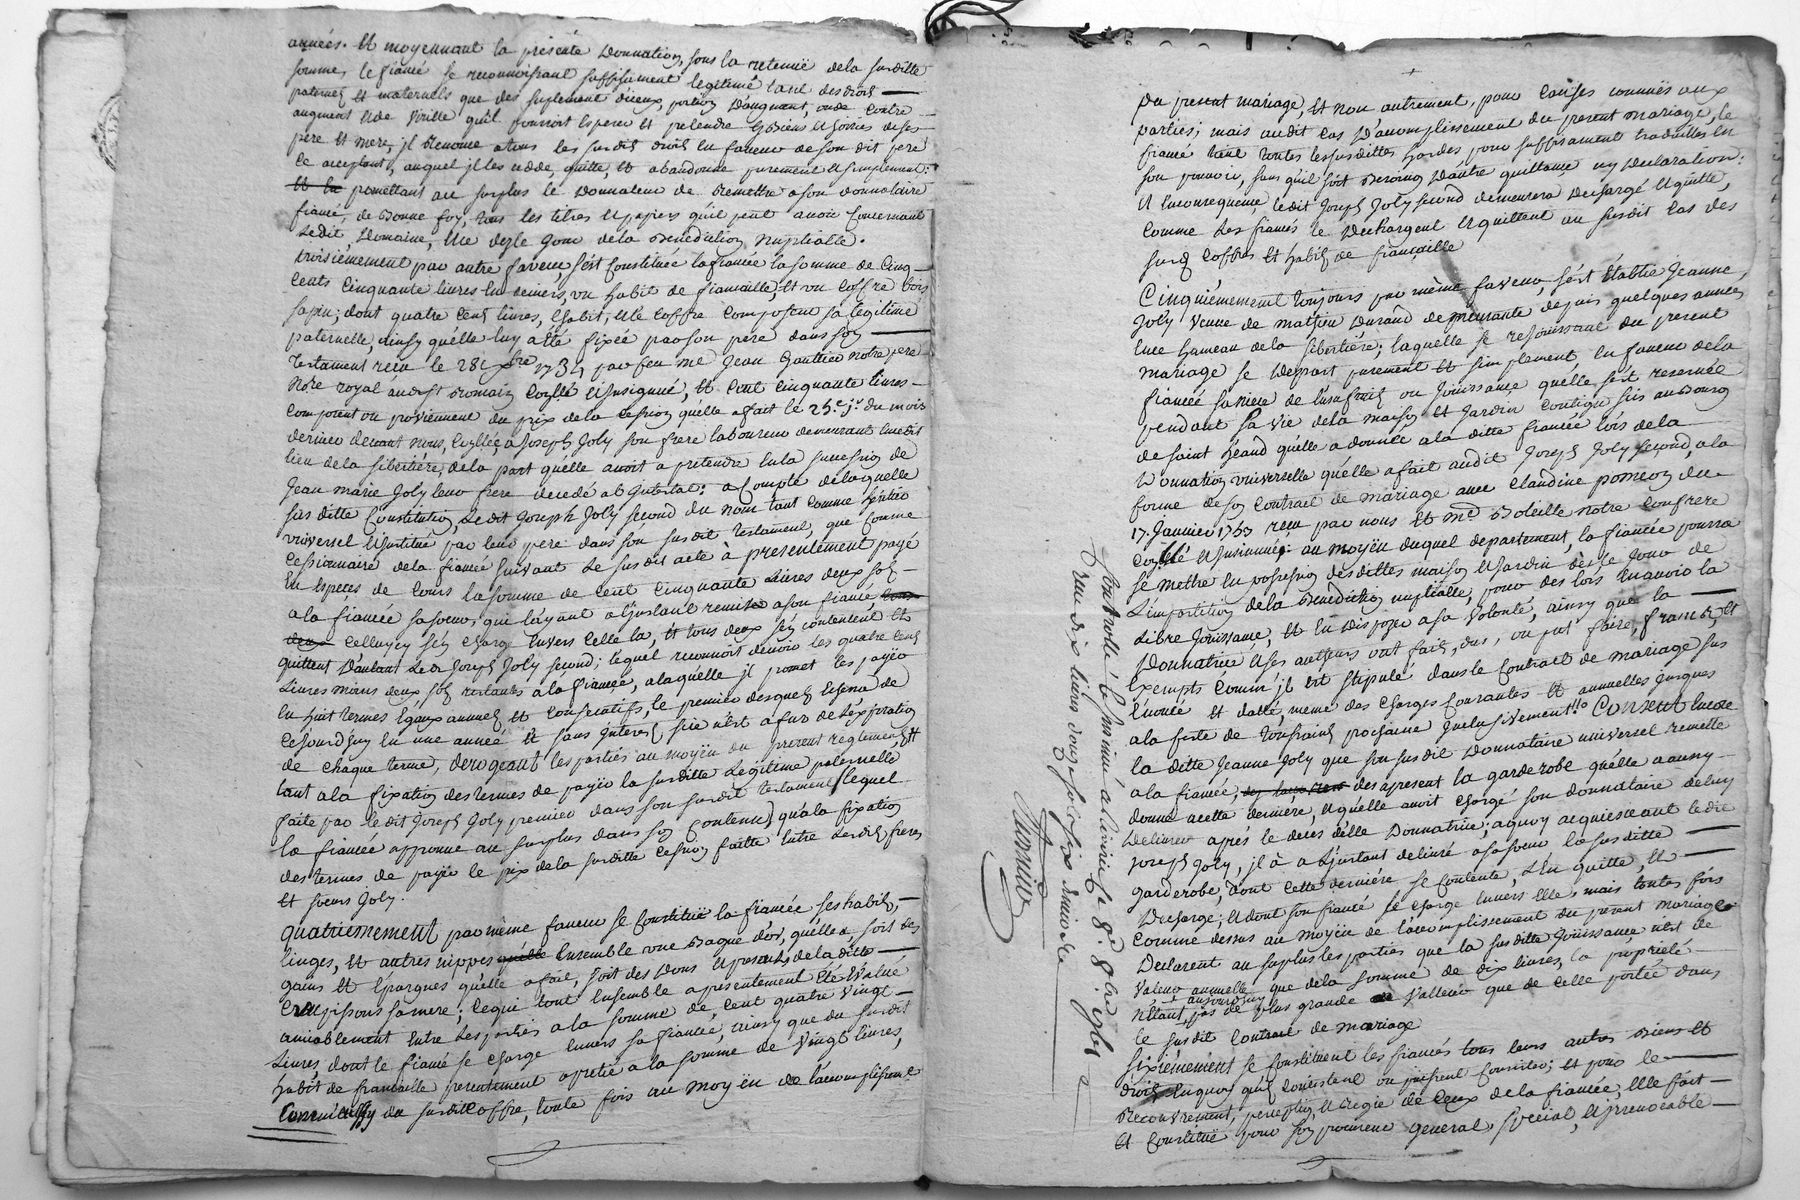 années. Et moyennant la présente Donnation, sous la retenuë dela susditte
somme, le fiancé se reconnoissant suffisament legitimé tant desdroits
paternels et maternels que des suplement diceux, portion D'augment, onde contre
augment et de Virille qu'il pourroit esperer et pretendre es Biens et hoiries deses
pere et mere, jl Renonce atous les susdits droits en faveur de son dit pere
ce acceptant, auquel jl les cedde, quitte, et abandonne purement et simplement;
Et la promettant au surplus le Donnateur de Remettre ason donnataire
fiancé, de Bonne foy, tous les titres et papiers qu'il peut avoir Concernant
Ledit Domaine, et ce dezle jour dela Benediction Nuptialle.
troisiemement par autre faveur, s'est Constituée lafiancée la somme de Cinq
Cents Cinquante livres en deniers, un habit de fiancaille, et un Coffre bois
sapin; dont quatre Cent livres, l'habit, et le Coffre Composent sa legitime
paternelle, ainsy qu'elle luy a été fixée par son pere dans son
testament reçu le 28e Xbre 1734 par feu me Jean Gaultier notre pere
No.re royal audit Bromain Collé et Insignué, et Cent Cinquante livres
Composent ou proviennent du prix dela Cession qu'elle afait le 25e j.r du mois
dernier devant nous, Collée, a Joseph Joly son frere laboureur demeurant audit
lieu dela sibertiére, dela part quelle avoit a pretendre enla succession de
Jean marie Joly leur frere decedé ab Intestat: a Compte delaquelle
sus ditte Constitution, Ledit Joseph Joly second du nom tant comme heritier
universel Institué par leur pere dans son susdit testament, que comme
Cessionnaire dela fiancée suivant Le susdit acte à presentement payé
En Espèces de Cours la somme de Cent Cinquante Livres deux sols
a la fiancée sasoeur, qui layant a l'Instant remise ason fiancé,
Celluycy s'en charge Envers Celle la, et tous deux s'en contentent et
quittent D'autant Le dt Joseph Joly second; lequel reconnoit devoir les quatre cent
Livres moins deux sols restants à la fiancée, alaquelle jl promet les payer
En huit termes Egaux annuels et Consecutifs, le premier desquels Echerra de
Cejourd'huy en une année et sans Interest si ce n'est a fur de L'expiration
de chaque terme, derogeant les parties au moyën du present reglement
tant a la fixation des termes de payer la susditte Legitime paternelle
faite par ledit Joseph Joly premier dans son susdit testament lequel
la fiancée approuve au surplus dans son Contenu, qu'a la fixation
des termes de payer le prix dela susditte Cession faitte Entre Lesdits frere
et soeur Joly.
quatriemement par même faveur se Constituë la fiancée ses habits,
linges, et autres nippes quelle Ensemble une Bague d'or, qu'elle a soit des
gains et Epargnes quelle a fait, soit des Dons et presents dela ditte
Crapissons samere; Cequi tout Ensemble apresentement été Evalué
amiablement Entre Les parties a la somme de Cent quatre Vingt
Livres, dont le fiancé se charge Envers sa fiancée, ainsy que du susdit
habit de fiancaille presentement apretié a la somme de Vingt livres,
Comme aussy du susdit Coffre, toute fois au moyën de l'accomplissement
Du present mariage, Et non autrement, pour Causes connuës aux
parties; mais audit Cas D'accomplissement du present Mariage, le
fiancé tient toutes lessusdittes hardes pour suffisament traduittes en
son pouvoir, sans qu'il soit Besoing D'autre quittance ny Declaration:
Et Enconsequence, ledit Joseph Joly second demeurera Dechargé et quitte,
Comme Les fiancés le Dechargent et quittent au susdit Cas des
susd. Coffres et habit de fiancaille
Cinquiemement toujours par même faveur, s'est Etablie Jeanne
Joly veuve de mathieu Durand demeurante depuis quelques années
Ence hameau dela sibertiére; laquelle se rejouissant du present
mariage se Depart purement et simplement En faveur dela
fiancée saniece de l'usufruit ou Jouissance quelle s'est reservée
pendant sa vie dela maison et Jardin Contigu sis au Bourg
de saint heand qu'elle a donnée ala ditte fiancée lors dela
Donnation universelle qu'elle afait audit Joseph Joly second, ala
forme deson Contract de mariage avec Claudine pomeon du
17. Janvier 1753 reçu par nous et Me Boleille notre Confrere
Collé et Insinuée: au moyën duquel departement, la fiancée pourra
se mettre En possession desdittes maison et Jardin dès le Jour de
L'impartition dela Benediction nuptialle, pour des lors Enavoir la
Libre Jouissance, et En Disposer a sa Volonté, ainsy que la
Donnatrice et ses autheurs ont fait, dus, ou put faire, francs, et
Exempts Comm' jl est stipulé dans le Contract de mariage sus
Enoncé et datté, meme des charges Courantes et annuelles Jusques
ala feste de toussaints prochaine Inclusivement. Consent Encore
la ditte Jeanne Joly que son susdit Donnataire universel remette
ala fiancée, des apresent la garderobe qu'elle a aussy
donné acette derniére, et qu'elle avoit chargé son donnataire deluy
Delivrer aprés le deces d'elle Donnatrice; aquoy acquiesceant ledit
Joseph Joly, jl à a L'instant delivré asasoeur la susditte
garderobe, dont cette derniére se Contente, L'en quitte, et
Decharge; et dont son fiancé se charge Envers Elle, mais toutes fois
Comme dessus au moyën de l'accomplissement du present mariage
Declarent au surplus les parties que la susditte Jouissance n'est de
Valeur annuelle que dela somme de dix livres, la proprieté
n'étant aujourdhuy pas de plus grande Valleur que de celle portée dans
le susdit Contract de mariage
Sixiemement se Constituent les fiancés tous leurs autres Biens et
droits Enquoy qu'ils Consistent ou puissent Consister; et pour le
Recouvrement, perception, et Regie de Ceux dela fiancée, Elle fait
et Constituë pour son procureur general, special, et irrevocable
Controllé et Insinué a le 8e 8bre 1761
Reçu dix livres douze sols six deniers